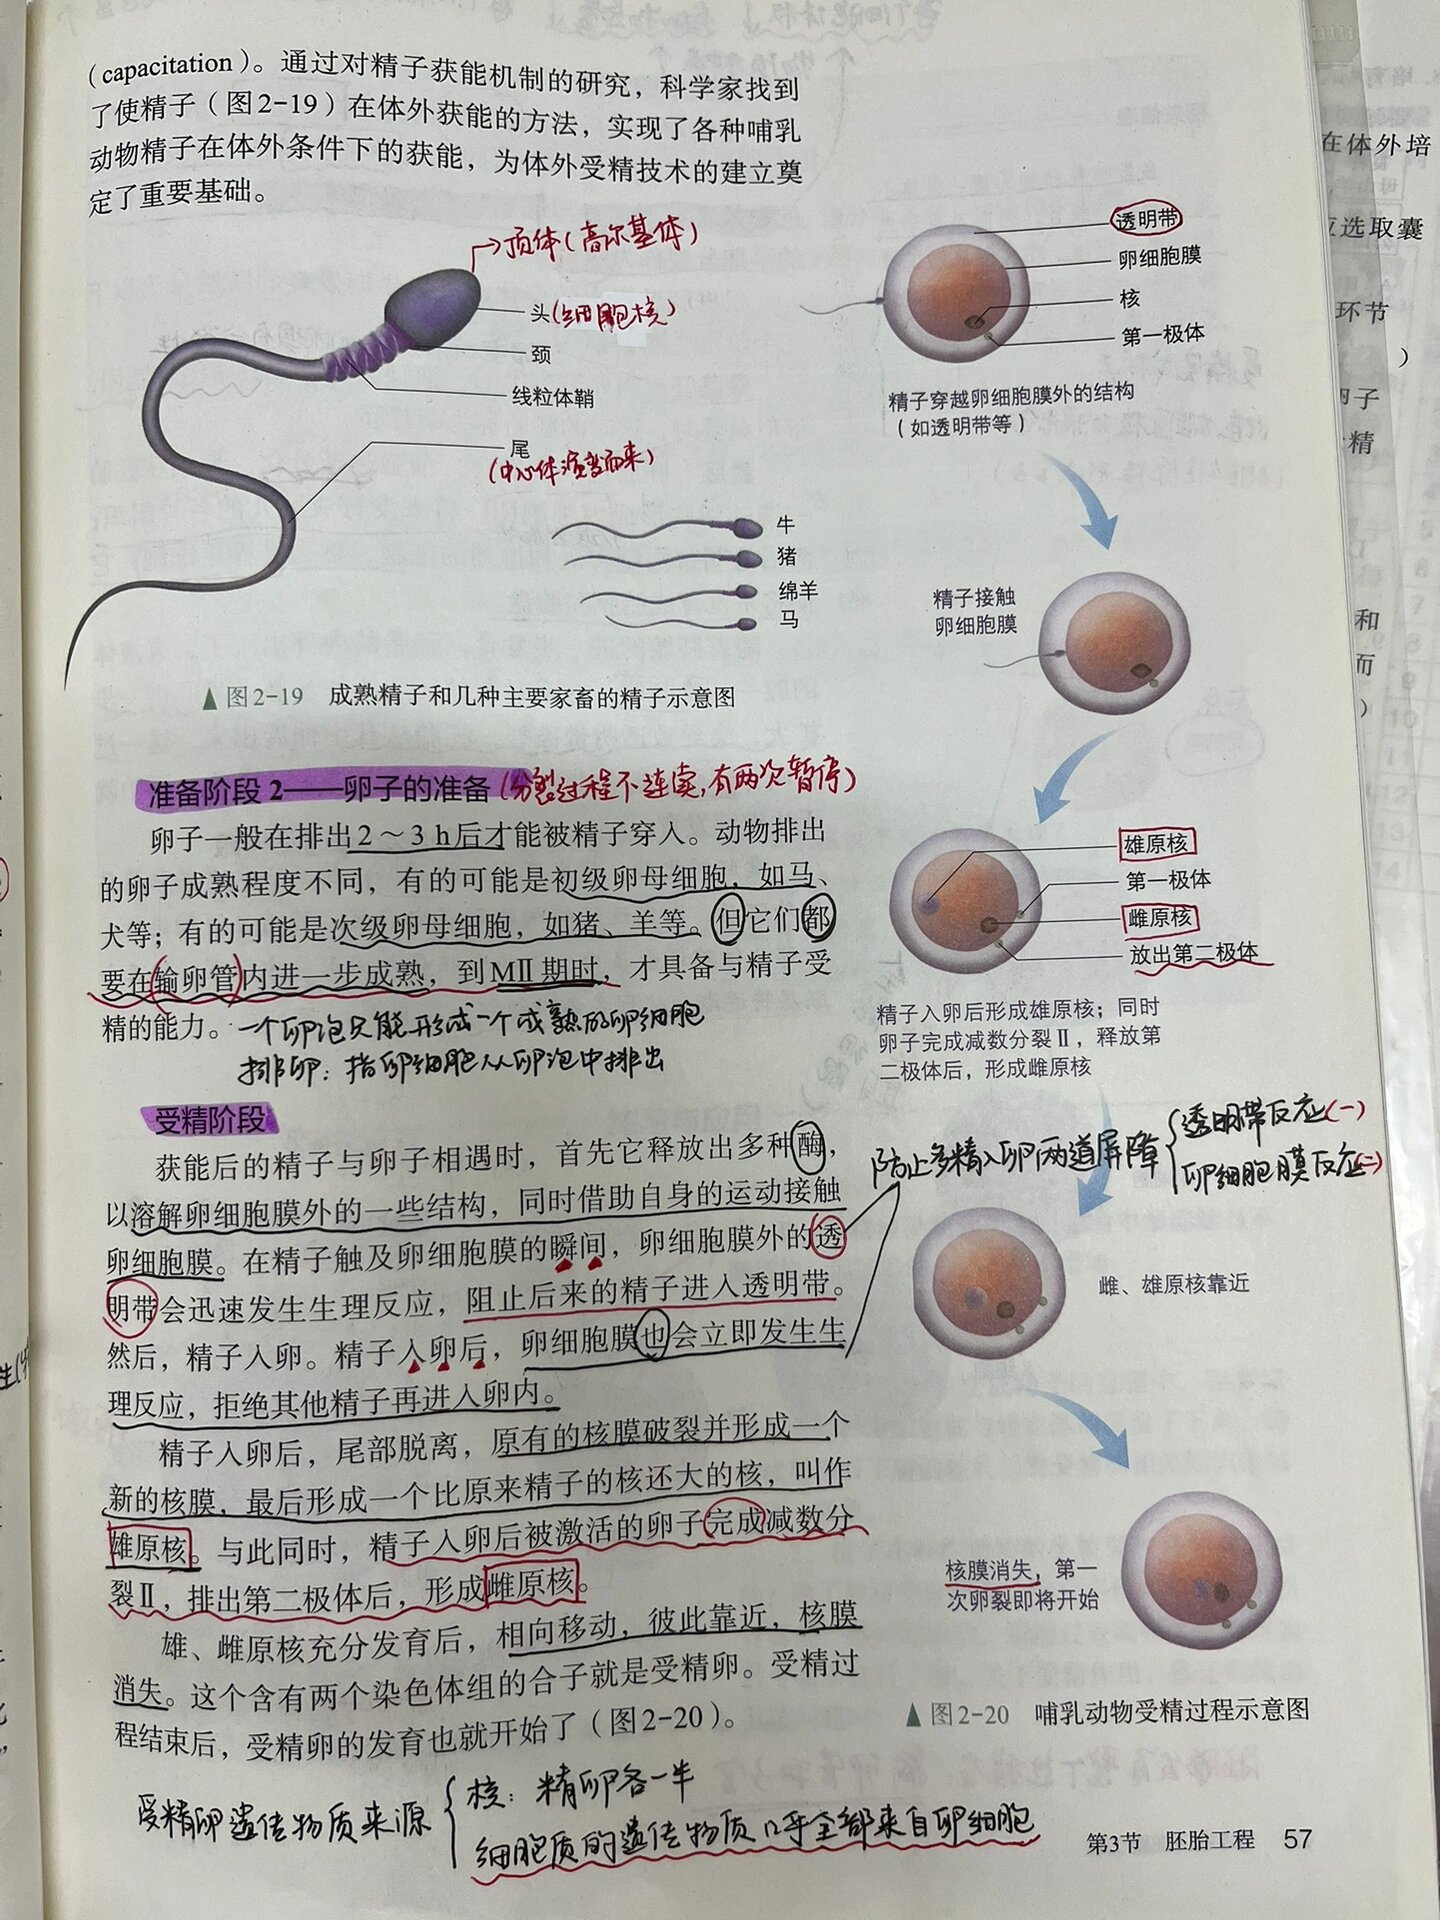 (capacitation)。通过对精子获能机制的研究，科学家找到
了使精子（图2-19）在体外获能的方法，实现了各种哺乳
动物精子在体外条件下的获能，为体外受精技术的建立奠
定了重要基础。
顶体(高尔基体)
头(细胞核)
颈
线粒体鞘
尾
(中心体演变而来)
牛
猪
绵羊
马
▲图2-19 成熟精子和几种主要家畜的精子示意图
准备阶段2——卵子的准备(分裂过程不连续,有两次暂停)
卵子一般在排出2～3 h后才能被精子穿入。动物排出
的卵子成熟程度不同，有的可能是初级卵母细胞，如马、
犬等；有的可能是次级卵母细胞，如猪、羊等。但它们都
要在输卵管内进一步成熟，到MⅡ期时，才具备与精子受
精的能力。一个卵泡只能形成一个成熟的卵细胞
排卵：指卵细胞从卵泡中排出
受精阶段
获能后的精子与卵子相遇时，首先它释放出多种酶，
以溶解卵细胞膜外的一些结构，同时借助自身的运动接触
卵细胞膜。在精子触及卵细胞膜的瞬间，卵细胞膜外的透
明带会迅速发生生理反应，阻止后来的精子进入透明带。
然后，精子入卵。精子入卵后，卵细胞膜也会立即发生生
理反应，拒绝其他精子再进入卵内。
精子入卵后，尾部脱离，原有的核膜破裂并形成一个
新的核膜，最后形成一个比原来精子的核还大的核，叫作
雄原核。与此同时，精子入卵后被激活的卵子完成减数分
裂Ⅱ，排出第二极体后，形成雌原核。
雄、雌原核充分发育后，相向移动，彼此靠近，核膜
消失。这个含有两个染色体组的合子就是受精卵。受精过
程结束后，受精卵的发育也就开始了（图2-20）。
受精卵遗传物质来源
核：精卵各一半
细胞质的遗传物质几乎全部来自卵细胞
透明带
卵细胞膜
核
第一极体
精子穿越卵细胞膜外的结构
（如透明带等）
精子接触
卵细胞膜
雄原核
第一极体
雌原核
放出第二极体
精子入卵后形成雄原核；同时
卵子完成减数分裂Ⅱ，释放第
二极体后，形成雌原核
防止多精入卵两道屏障
透明带反应(一)
卵细胞膜反应(二)
雌、雄原核靠近
核膜消失，第一
次卵裂即将开始
▲图2-20 哺乳动物受精过程示意图
第3节 胚胎工程 57
在体外培
选取囊
环节
）
子
精
和
而
）